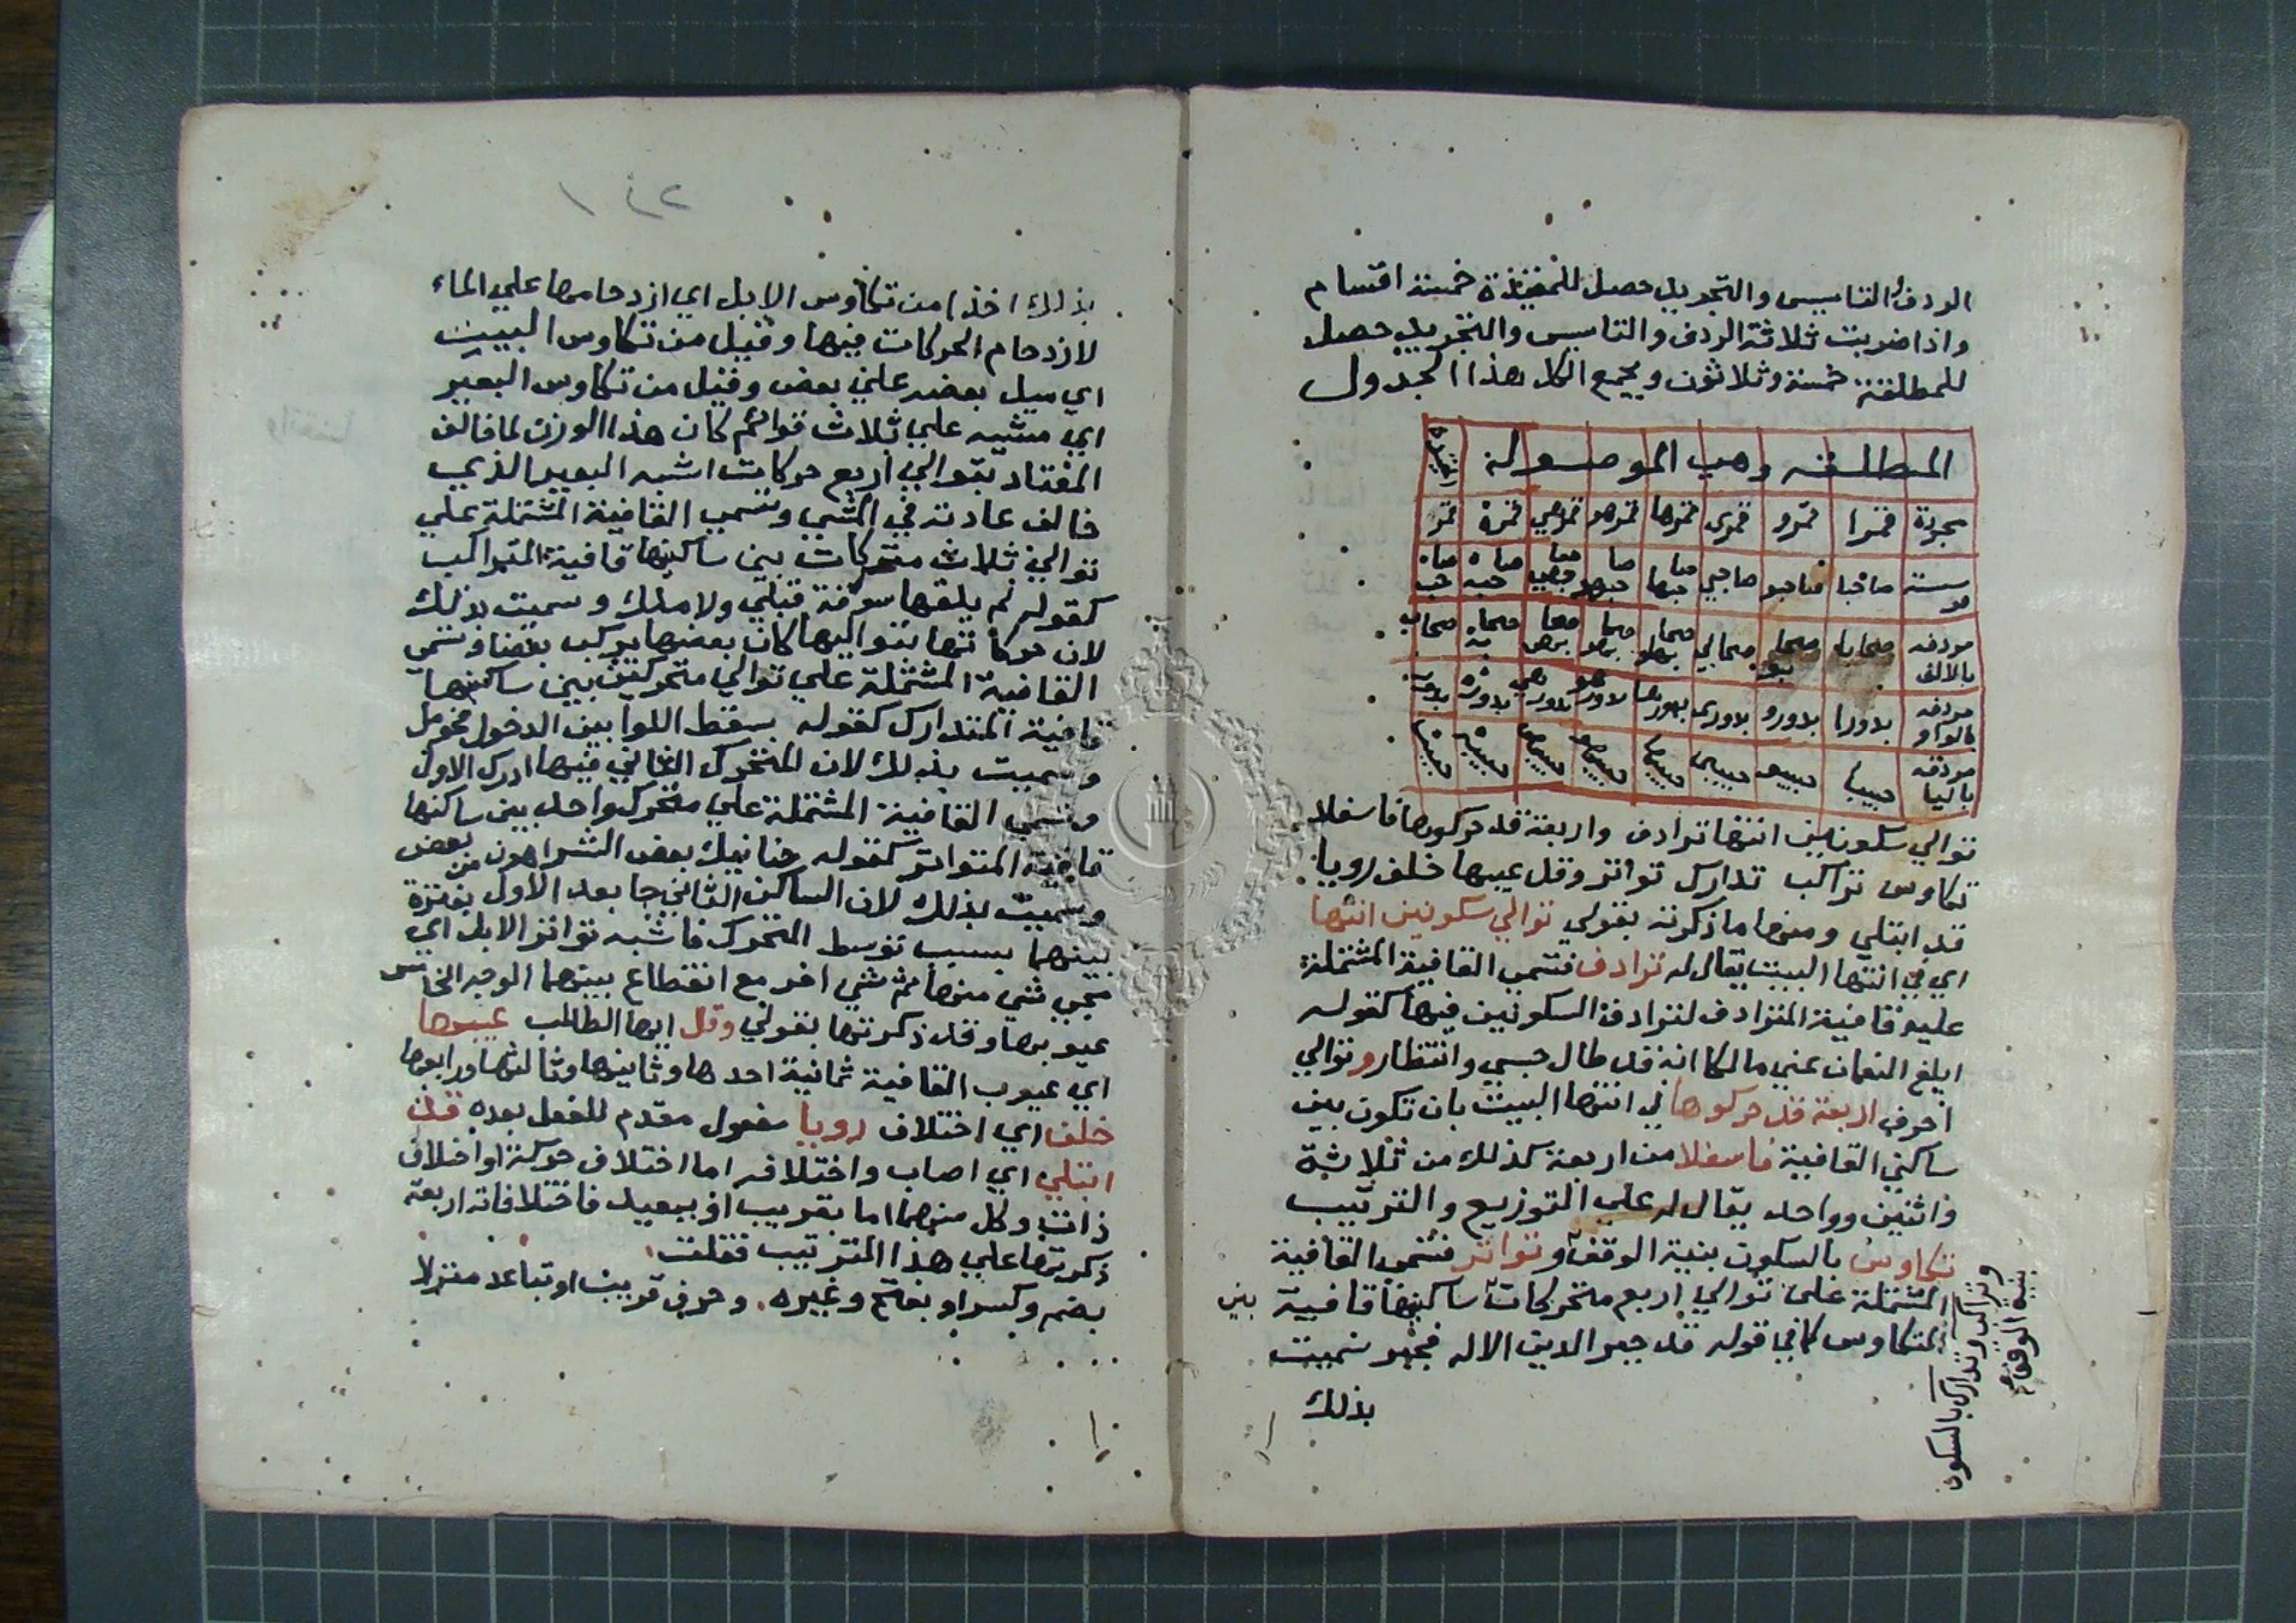 الردف والتاسيس والتجريد حصل للمقيدة خمسة اقسام
واذا ضربت ثلاثة الردف والتاسيس والتجريد حصل
للمطلقة خمسة وثلاثون ويجمع الكل هذا الجدول
المطلقه وهي الموصوله المقيدة
مجردة قمرا قمرو قمرى قمرها قمرهو قمرهي قمره قمر
موسسة صاحبا صاحبو صاحبي صاحبها صاحبهو صاحبهي صاحبه صاحب
مردفه بالالف سحابا سحابو سحابي سحابها سحابهو سحابهي سحابه سحاب
مردفه بالواو بدورا بدورو بدورى بدورها بدورهو بدورهي بدوره بدور
مردفه باليا حبيبا حبيبو حبيبى حبيبها حبيبهو حبيبهي حبيبه حبيب
توالي سكونين انتها ترادف واربعة قد حركوها فاسفلا
تكاوس تراكب تدارك تواتر وقل عيبها خلف رويا
قد ابتلي ومنها ما ذكرته بقولي توالي سكونين انتها
اي في انتها البيت يقال له ترادف فتسمى القافية المشتملة
عليه قافية المترادف لترادف السكونين فيها كقوله
ابلغ النعمان عني مالكا انه قد طال حبسي وانتظار وتوالي
احرف اربعة قد حركوها في انتها البيت بان تكون بين
ساكني القافية فاسفلا من اربعة كذلك من ثلاثة
واثنين وواحد يقال له علي التوزيع والترتيب
تكاوس بالسكون بنية الوقف وتواتر فتسمى القافية
المشتملة على توالي اربع متحركات ساكنيها قافية بين
المتكاوس كما في قوله قد جبر الدين الاله فجبر سميت
بذلك
وتراكب وتدارك بالسكون
بنية الوقف
بذلك اخذا من تكاوس الابل اي ازدحامها علي الماء
لازدحام الحركات فيها وقيل من تكاوس البيت
اي ميل بعضه علي بعض وقيل من تكاوس البعير
اي مشيه علي ثلاث قوائم كان هذا الوزن لما خالف
المعتاد بتوالي اربع حركات اشبه البعير الذي
خالف عادته في المشي وتسمى القافية المشتملة علي
توالي ثلاث متحركات بين ساكنيها قافية المتراكب
كقوله لم يلقها سوقة قبلي ولا ملك وسميت بذلك
لان حركاتها بتواليها كان بعضها يركب بعضا وتسمي
القافية المشتملة علي توالي متحركين بين ساكنيها
قافية المتدارك كقوله بسقط اللوا بين الدخول فحومل
وسميت بذلك لان المتحرك الثاني فيها ادرك الاول
وتسمي القافية المشتملة علي متحرك واحد بين ساكنها
قافية المتواتر كقوله حنانيك بعض الشر اهون من بعض
وسميت بذلك لان الساكن الثاني جا بعد الاول بفترة
بينهما بسبب توسط المتحرك فاشبه تواتر الابل اي
مجي شي منها ثم شي اخر مع انقطاع بينهما الوجه الخامس
عيوبها وقد ذكرتها بقولي وقل ايها الطالب عيبها
اي عيوب القافية ثمانية احدها وثانيها وثالثها ورابعها
خلف اي اختلاف رويا مفعول مقدم للفعل بعده قد
ابتلي اي اصاب واختلافه اما اختلاف حركة او اختلاف
ذات وكل منهما اما بقريب او ببعيد فاختلافاته اربعة
ذكرتها علي هذا الترتيب فقلت
بضم وكسر او بفتح وغيره وحرف قريب او تباعد منزلا